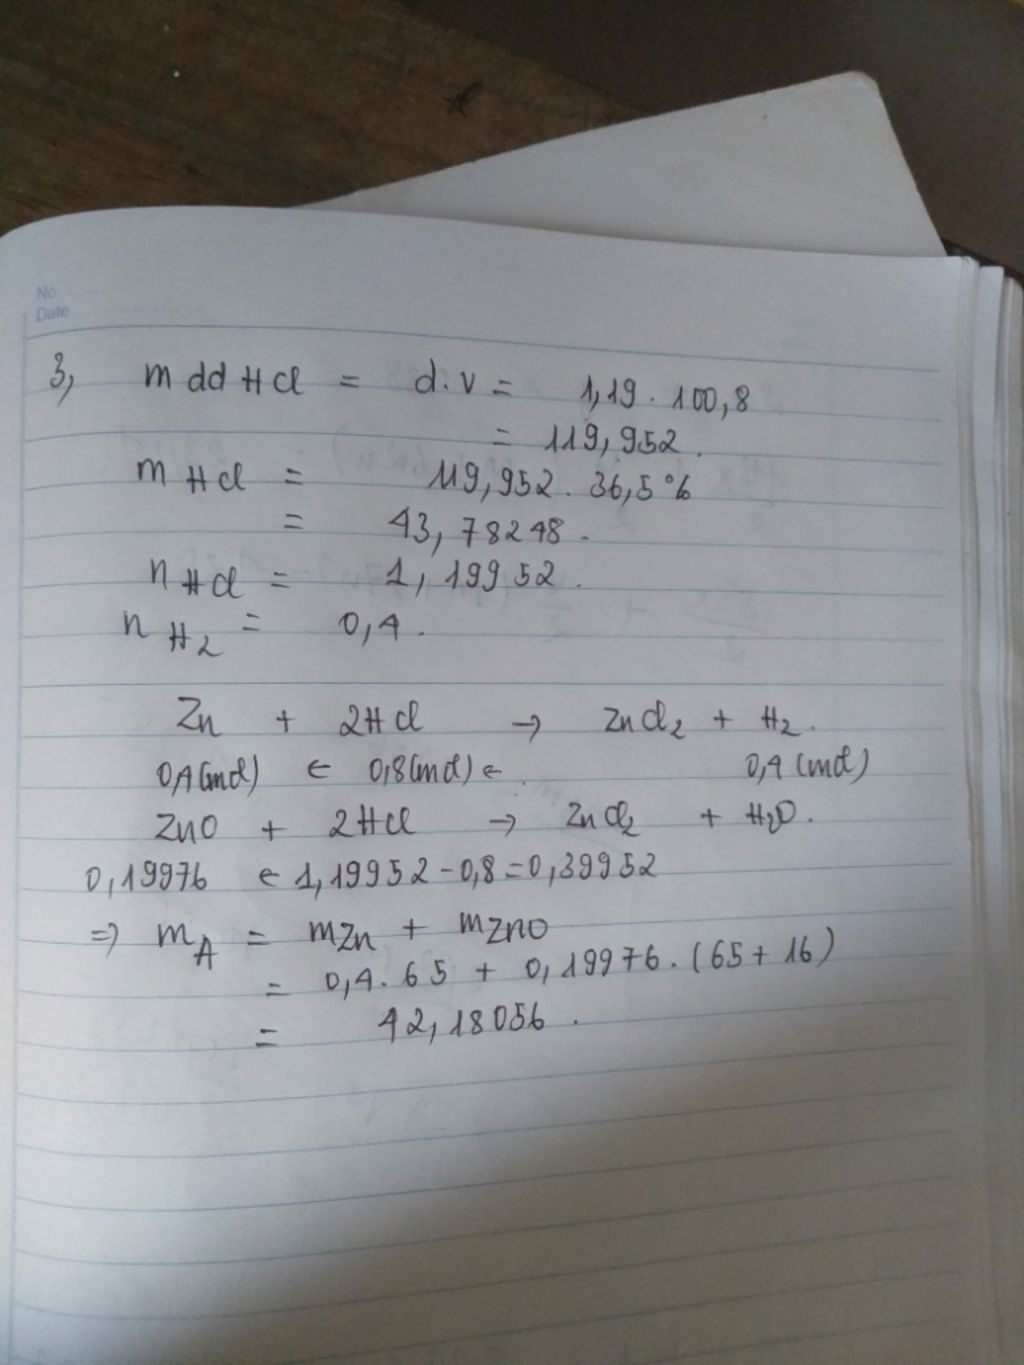 No.
Date
3, m dd HCl = d.v = 1,19. 100,8
= 119,952.
m HCl = 119,952. 36,5%
= 43,78248.
n HCl = 1,19952.
n H2 = 0,4.
Zn + 2HCl → ZnCl2 + H2.
0,4(mol) ← 0,8(mol) ← 0,4(mol)
ZnO + 2HCl → ZnCl2 + H2O.
0,19976 ← 1,19952 - 0,8 = 0,39952
=> mA = mZn + mZnO
= 0,4.65 + 0,19976.(65+16)
= 42,18056.